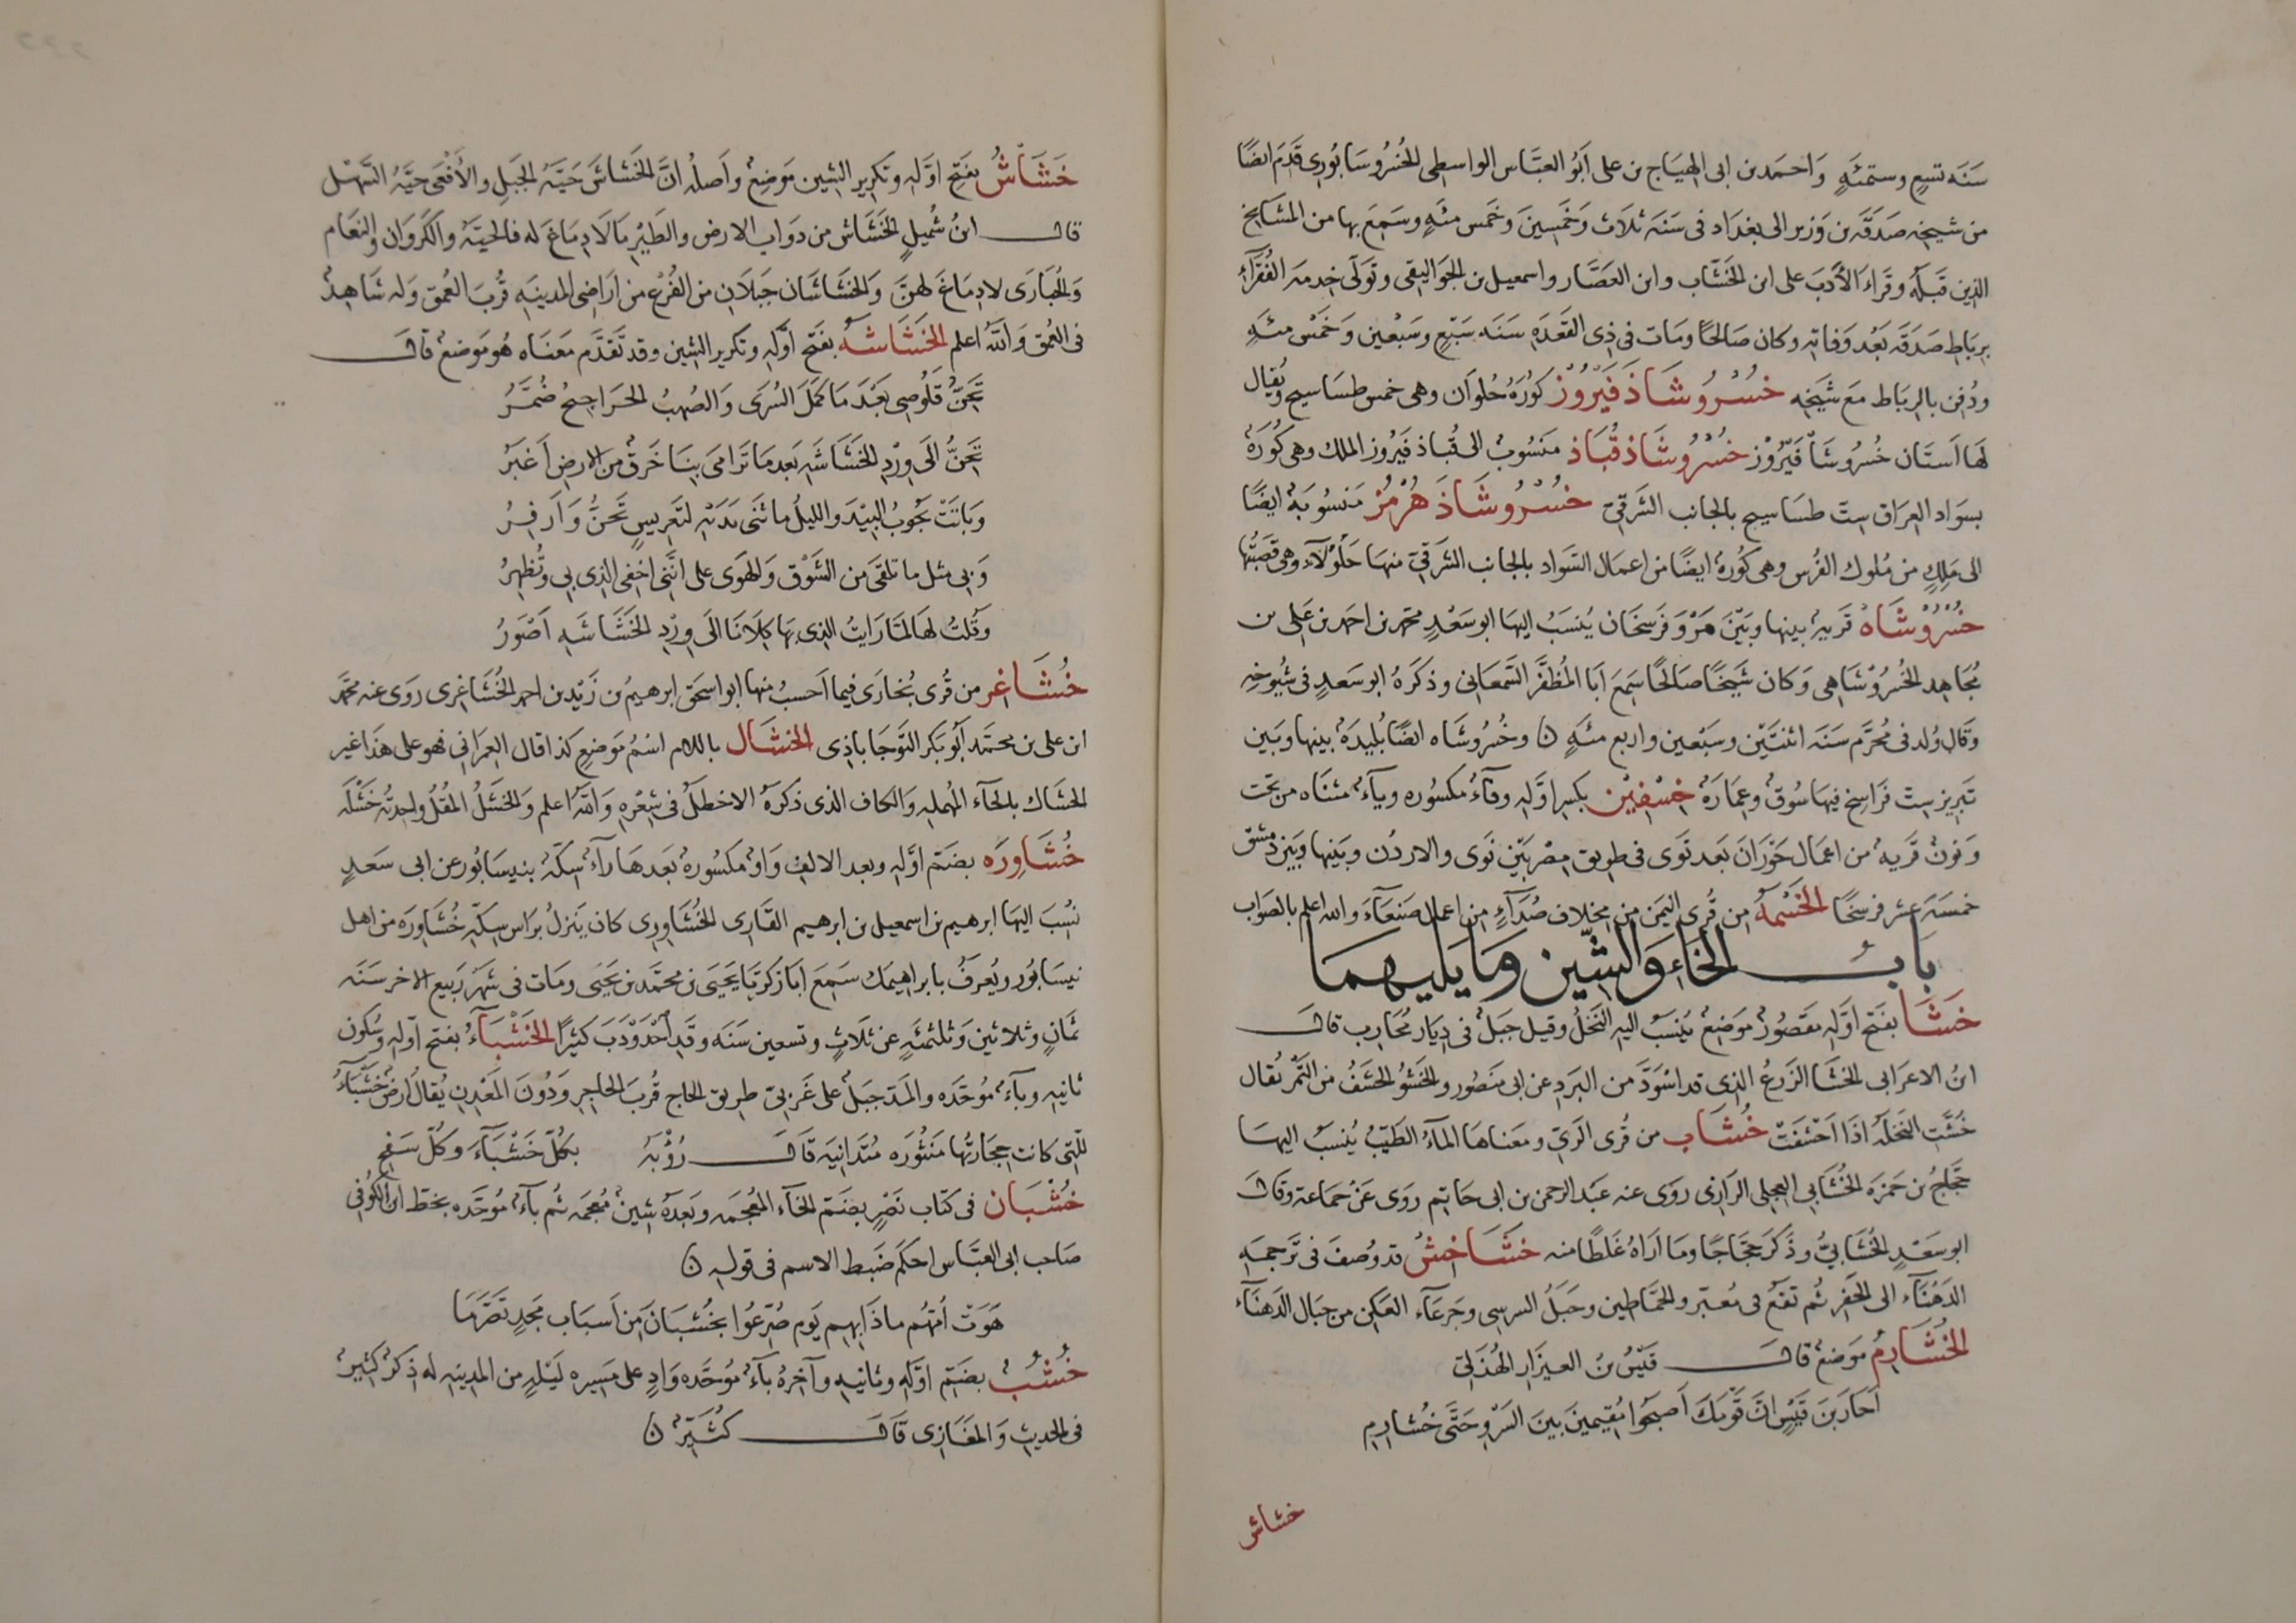 سَنَه تسعٍ وستمئَةٍ وَاحمَد بن ابى الهيَاج بن على ابَوُ العبَّاس الواسطى الخُسرُوسَابُورى قدَم ايضًا
من شيخِه صَدَقَه بن وَزير الى بغدَاد فى سَنَه ثلاث وَخمَسينَ وخمَس مئَهٍ وسَمِعَ بها من المشَايخ
الذين قبَلَه وقرَاءَ الأدَبَ على ابن الخَشَّاب وابن العَصَّار واسمعيل بن الجوَاليقى وتوَلّى خِدمَه الفُقَرَآءِ
برِبَاطِ صَدَقَه بَعْد وَفاتِه وكان صَالحًا ومَات فى ذى القَعَدَه سَنَه سَبْعٍ وسَبْعين وَخمَسْ مئَهِ
ودُفِن بالرِبَاط مَعَ شيَخِه خُسْرُو شَاذَ فَيَرُوُزْ كوُرَهُ حُلوَان وهى خمس طسَاسيج ويُقال
لهَا اَستَان خُسرُوشَاذ فَيَرُوْز خُسْرُوشَاذ قُبَاذ منَسُوُبٌ الى قُبَاذ فيَرُوز الملك وهى كُوُرَهٌ
بسوَاد العِرَاق سِتّ طسَاسيج بالجانب الشَرقىّ خُسْرُوشَاذَ هُرْمُزْ منَسوُبَهٌ ايضًا
الى مَلِكٍ من مُلوك الفُرس وهى كوُرهٌ ايضًا من اعمَال السَوَاد بالجانب الشَرقىّ منهَا جَلوُلآء وهى قصَبَتُها
خُسْرُوْشَاهْ قريَهٌ بينها وبَيْنَ مَرْوَ فَرسَخَان يُنسَبُ اليهَا ابو سَعْدٍ محمَد بن احمَد بن عَلى بن
مُجَاهِد الخُسْرُوْشَاهِى وَكان شَيخًا صَالحًا سَمِعَ اَبَا المُظفَّر السَّمعَانى وذكرَهُ ابو سَعدٍ فى شيُوخِه
وقال وُلد فى مُحرَّم سَنَه اثنَتَيْن وسَبْعين واربع مئَهٍ ن وخُسرُوشَاه ايضًا بُليدَهٌ بينها وبَين
تبريز سِتّ فرَاسِخ فيهَا سُوقٌ وعِمَارَهٌ خِسْفِيْن بكسر اوَّلهِ وفآءٌ مكسُوره ويآءٌ مثناه من تحت
وَنونٌ قريهٌ من اعمال حَوْرَانَ بَعد نَوَى فى طريق مِصْر بَيْن نَوَى والاردُن وبَينها وبَين دمشق
خمسَهَ عشَر فرسخًا الخَسْمَهُ من قُرى اليمَن من مخِلاف صُدَآءٍ من اعمال صَنعَآءَ والله اعلم بالصوَاب
بابُ الخاءِ وَالشّين وَمَا يليهمَا
خَشَا بفَتح اوَّلهِ مقصُورٌ موَضِعٌ يُنسَبُ اليه النّخلُ وقيل جَبَلٌ فى ديَار مُحَارِب قال
ابنُ الاعرَابى الخَشَا الزَرعُ الذى قد اسْوَدَّ من البَرَدِ عن ابى منصُور والخَشوُ الحشَفُ من التَّمْر يُقال
خَشَتِ النخَلَهُ اذَا اَحْشفَتْ خُشَاب من قُرى الرىّ ومَعنَاهَا المآءُ الطَيِّبُ يُنسَبُ اليهَا
حَجَّاجُ بن حَمزَه الخُشَابى العِجلى الرَازى روَى عنه عَبد الرحمن بن ابى حَاتِم روَى عَنْ جمَاعة وقَال
ابو سَعْدٍ الخُشَابىُّ وذكَرَ حَجّاجًا ومَا ارَاهُ غَلطًا منه خَشَاخِشُ قد وُصِفَ فى ترجمَهِ
الدَهْنَآء الى الحَفَر ثمُ تقَعُ فى مُعبّر والحمَّاطين وحَبلُ السرسى وجَرعَآء العَكِن من حبَال الدَهنَآء
الخُشَارِمُ مَوضِعٌ قال قيَسُ بنُ العيزَارِ الهُذَلىّ
اَحَارِ بَنَ قيَسٍ انّ قَوْمَكَ اَصبَحوُا مُقِيمينَ بيَن السَرْوِ حَتَّى خُشارِمِ
خشاش
خَشَاشُ بفَتح اوّلهِ وتكرير الشين مَوَضِعٌ واَصلُه انَّ الخَشَاشَ حَيَّهُ الجَبلِ والأفْعَى حيَّهُ السَّهْل
قال ابنُ شُميلٍ الخَشَاش من دوَابِ الارض والطَيْر مَا لَا دِمَاغَ له فالحيَّهُ والكَروَان والنعَام
وَالحُبَارَى لا دِمَاغَ لهنَّ وَالخَشَاشَان جَبَلَانِ من الفُرْع من ارَاضى المدينَهِ قُرْبَ العُمق وَله شَاهِدٌ
فى العمق وَالله اعلم الخَشَاشَهُ بفَتح اوَّلهِ وتكرير الشين وقد تقَدَّم مَعنَاه هُو مَوضعٌ قال
تحِنُّ قَلُوصِى بَعْدَ مَا كَمّلَ السُرَى وَالصُهبُ الحَرَاجِيحُ ضُمَّرُ
تحِنُّ الَى وِرْدِ الخَشَاشَهِ بَعد مَا تَرَامَى بنَا خَرقٌ من الارض اَغبَرُ
وَبَاتَتْ تجوُبُ البيْدَ والليلُ ما ثَنى يَدَيْهِ لتَعريسٍ تحَنُّ وَاَزفِرُ
وَبى مثل ما تلقى من الشَوْق وَالهوَى على انَّنى اخفى الذى بى وتُظهِرُ
وَقُلتُ لهَا لمّا رَايتُ الذى بهَا كِلَانَا الَى وِرْدِ الخَشَاشَهِ اَصْوَرُ
خُشَاغَر من قُرى بُخارَى فيما اَحسبُ منها ابو اسحَق ابرهيمُ بن زَيْد بن احمد الخُشَاغَرى روَى عنه محمَّد
ابن على بن محمّد ابَوُ بَكر النَوْجَابَاذِى الخشَال باللام اسْمُ مَوضِعٍ كذا قال العِمرَانى فهوَ على هَذا غير
الحشَاك بالحآء المُهملهِ والكاف الذى ذكرَهُ الاخطلُ فى شعْرِه وَاللهُ اعلم وَالخَشْلُ المُقْلُ واحِدتُه خَشْلَه
خُشَاوِرَه بضَمّ اوَّلهِ وبعد الالفِ وَاوٌ مكسُورهٌ بَعدهَا رآءٌ سكّهٌ بنيسَابُور عن ابى سَعدٍ
نُسِبَ اليهَا ابرهيم بن اسمعيل بن ابرهيم القَارى الخُشَاوِرى كان ينزلُ برَاس سِكّهِ خُشَاورَه من اهل
نيسَابُور ويُعرَفُ بابراهيمَك سَمِعَ اَبَا زكَريّا يَحيَى بن محمَّد بن يَحيَى ومَات فى شَهر رَبيع الاخر سَنَه
ثمَانٍ وثلاثين وَثلثمئَهٍ عن ثلاثٍ وتسعين سَنَه وقَدِ احْدَوْدَبَ كثيرًا الخَشْبَآءُ بفتح اوّلهِ وسُكون
ثانيهِ وبآءٌ مُوحَّده والمدّ جَبلٌ على غَربىّ طريق الحاج قُربَ الحاجِرِ وَدُونَ المَعْدِنِ يُقالُ ارضٌ خَشْبَآءُ
للّتى كانت حِجَارتُها مَنثُورَه مُتدَانيَه قال رُؤْبَهُ بكُلّ خَشْبَآءَ وكُلّ سَفْحِ
خُشْبَان فى كتاب نَصْرٍ بضَمّ الخآء المُعجمَه وبَعدَهُ شينٌ مُعجمَه ثم بآءٌ مُوحَّده بخطّ ابن الكوُفى
صَاحب ابى العبَّاس احكَم ضَبط الاسم فى قولهِ ن
هَوَتْ اُمّهُم ماذَا بِهم يَوم صُرِّعُوا بخُشْبَانَ مِن اَسبَاب مَجدٍ تَصَرَّمَا
خُشُبٌ بضَمّ اوَّلهِ وثانيهِ وآخِرُهُ بآءٌ مُوحَّده وَادٍ على مَسيره لَيْلهٍ من المدينه له ذكرٌ كثيرٌ
فى الحديث وَالمغَازى قَال كُثيّرٌ ن